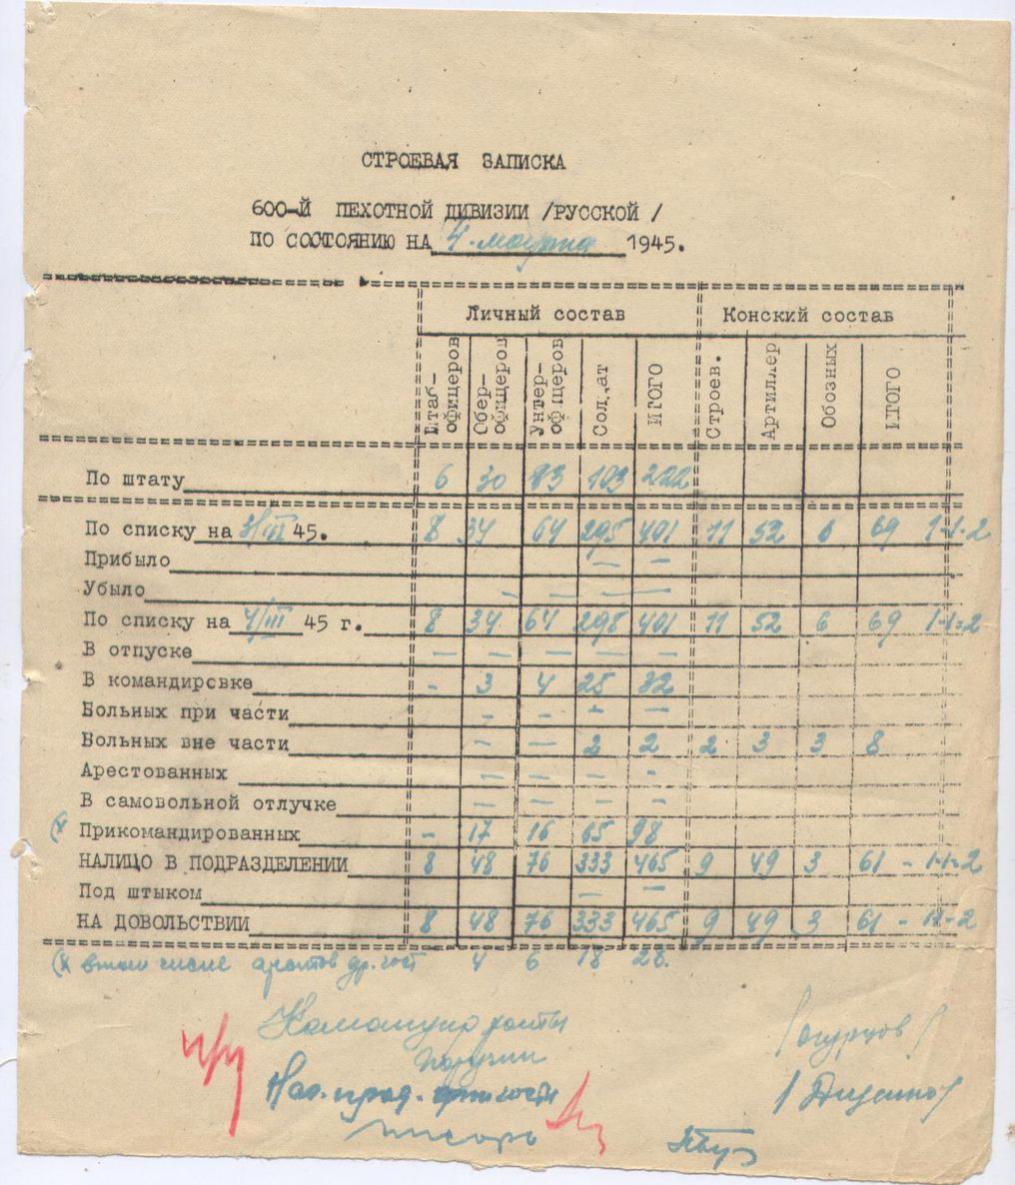 СТРОЕВАЯ ЗАПИСКА
600-Й ПЕХОТНОЙ ДИВИЗИИ /РУССКОЙ /
ПО СОСТОЯНИЮ НА 4. марта 1945.
Личный состав Конский состав
Штаб-офицеров Обер-офицеров Унтер-офицеров Солдат ИТОГО Строев. Артиллер Обозных ИТОГО
По штату 6 30 83 103 222
По списку на 3/III 45. 8 34 64 295 401 11 52 6 69 1-1-2
Прибыло — —
Убыло — — — —
По списку на 4/III 45 г. 8 34 64 295 401 11 52 6 69 1-1-2
В отпуске — — — — —
В командировке - 3 4 25 32
Больных при части - - - —
Больных вне части - — 2 2 2 3 3 8
Арестованных — — — -
В самовольной отлучке — — — -
(x Прикомандированных - 17 16 65 98
НАЛИЦО В ПОДРАЗДЕЛЕНИИ 8 48 76 333 465 9 49 3 61 - 1-1-2
Под штыком — —
НА ДОВОЛЬСТВИИ 8 48 76 333 465 9 49 3 61 - 1-1-2
(x в том числе 4 6 18 28.
Командир роты
Нач.
писарь